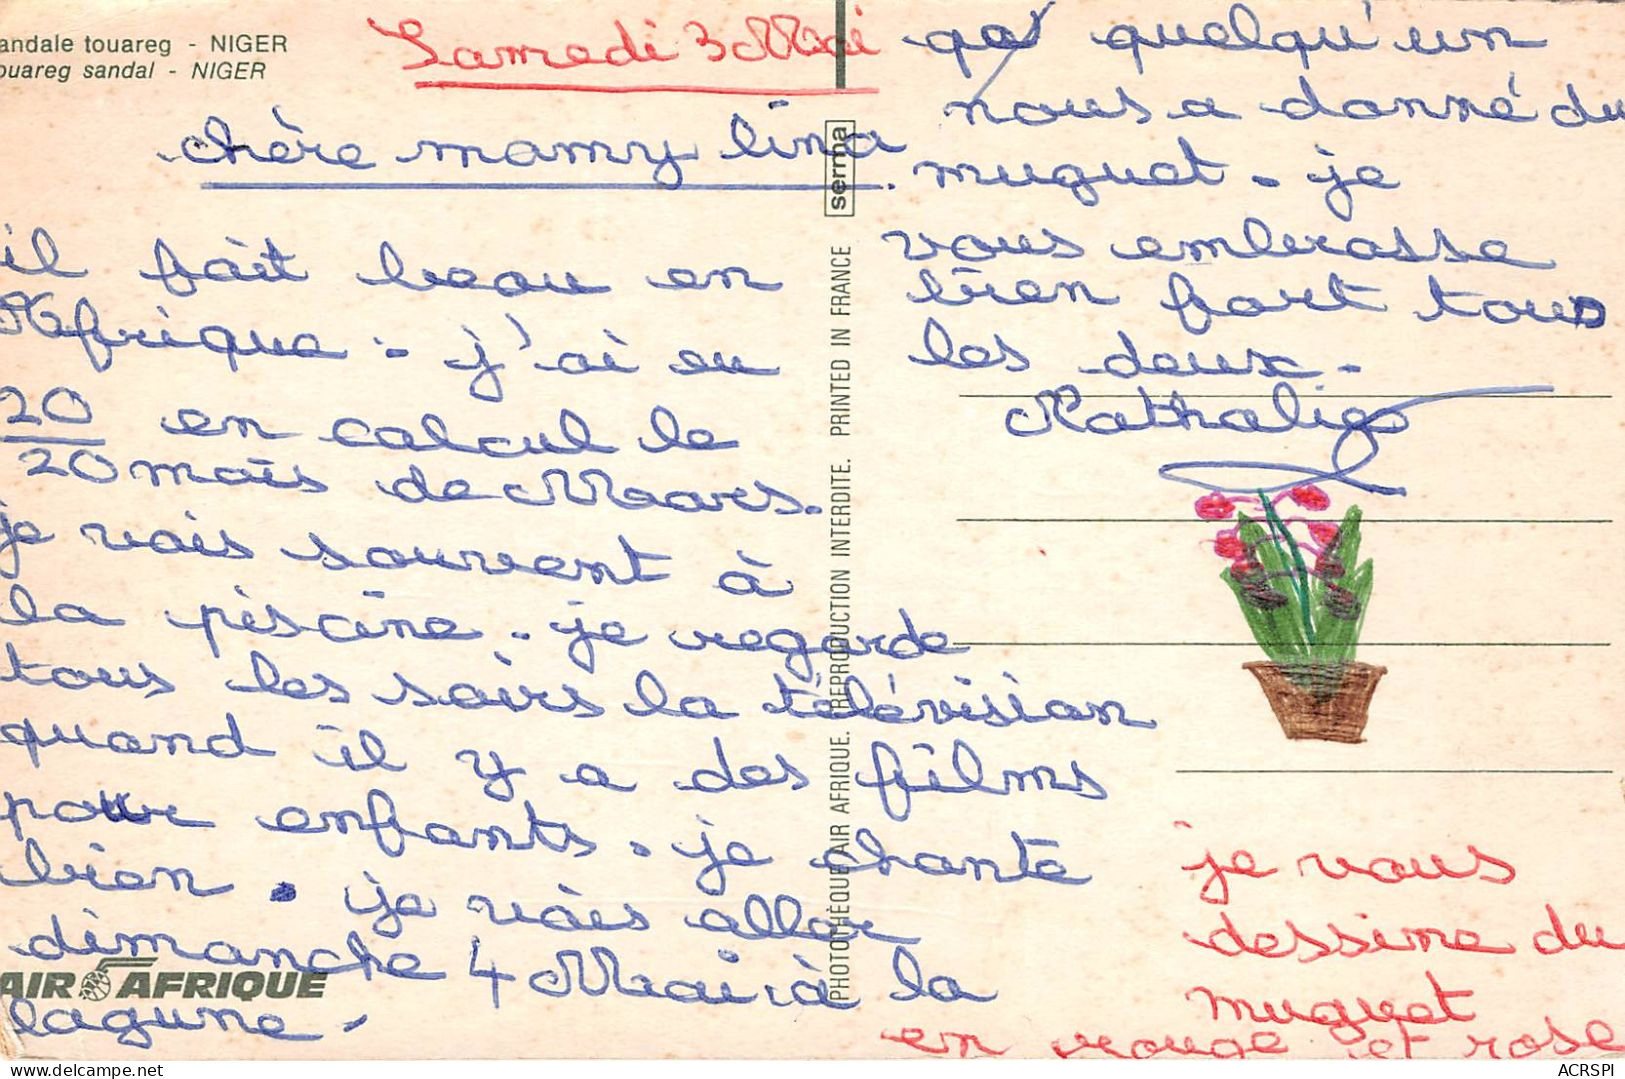 andale touareg - NIGER
ouareg sandal - NIGER
Samedi 3 Mai
chère mamy lina.
il fait beau en
Afrique. j'ai eu
20/20 en calcul le
mois de Mars.
je vais souvent à
la piscine. je regarde
tous les soirs la télévision
quand il y a des films
pour enfants. je chante
bien. je vais aller
dimanche 4 Mai à la
lagune.
AIR AFRIQUE
PHOTOTHÈQUE AIR AFRIQUE. REPRODUCTION INTERDITE. PRINTED IN FRANCE
serma
quelqu'un
nous a donné du
muguet. je
vous embrasse
bien fort tous
les deux.
Nathalie
je vous
dessine du
muguet
en rouge et rose
ACRSPI